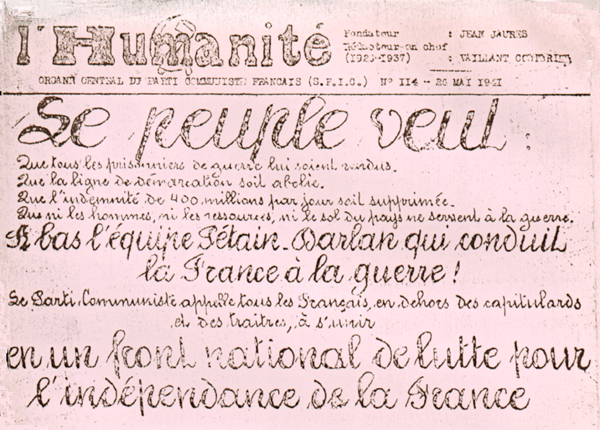 l'Humanité
Fondateur : JEAN JAURES
Rédacteur-en chef
(1926-1937) : VAILLANT COUTURIER
ORGANE CENTRAL DU PARTI COMMUNISTE FRANCAIS (S.F.I.C.) N° 114 - 26 MAI 1941
Le peuple veut :
Que tous les prisonniers de guerre lui soient rendus.
Que la ligne de démarcation soit abolie.
Que l'indemnité de 400 millions par jour soit supprimée.
Que ni les hommes, ni les ressources, ni le sol du pays ne servent à la guerre.
A bas l'équipe Pétain-Darlan qui conduit
la France à la guerre !
Le Parti Communiste appelle tous les Français, en dehors des capitulards
et des traitres, à s'unir
en un front national de lutte pour
l'indépendance de la France